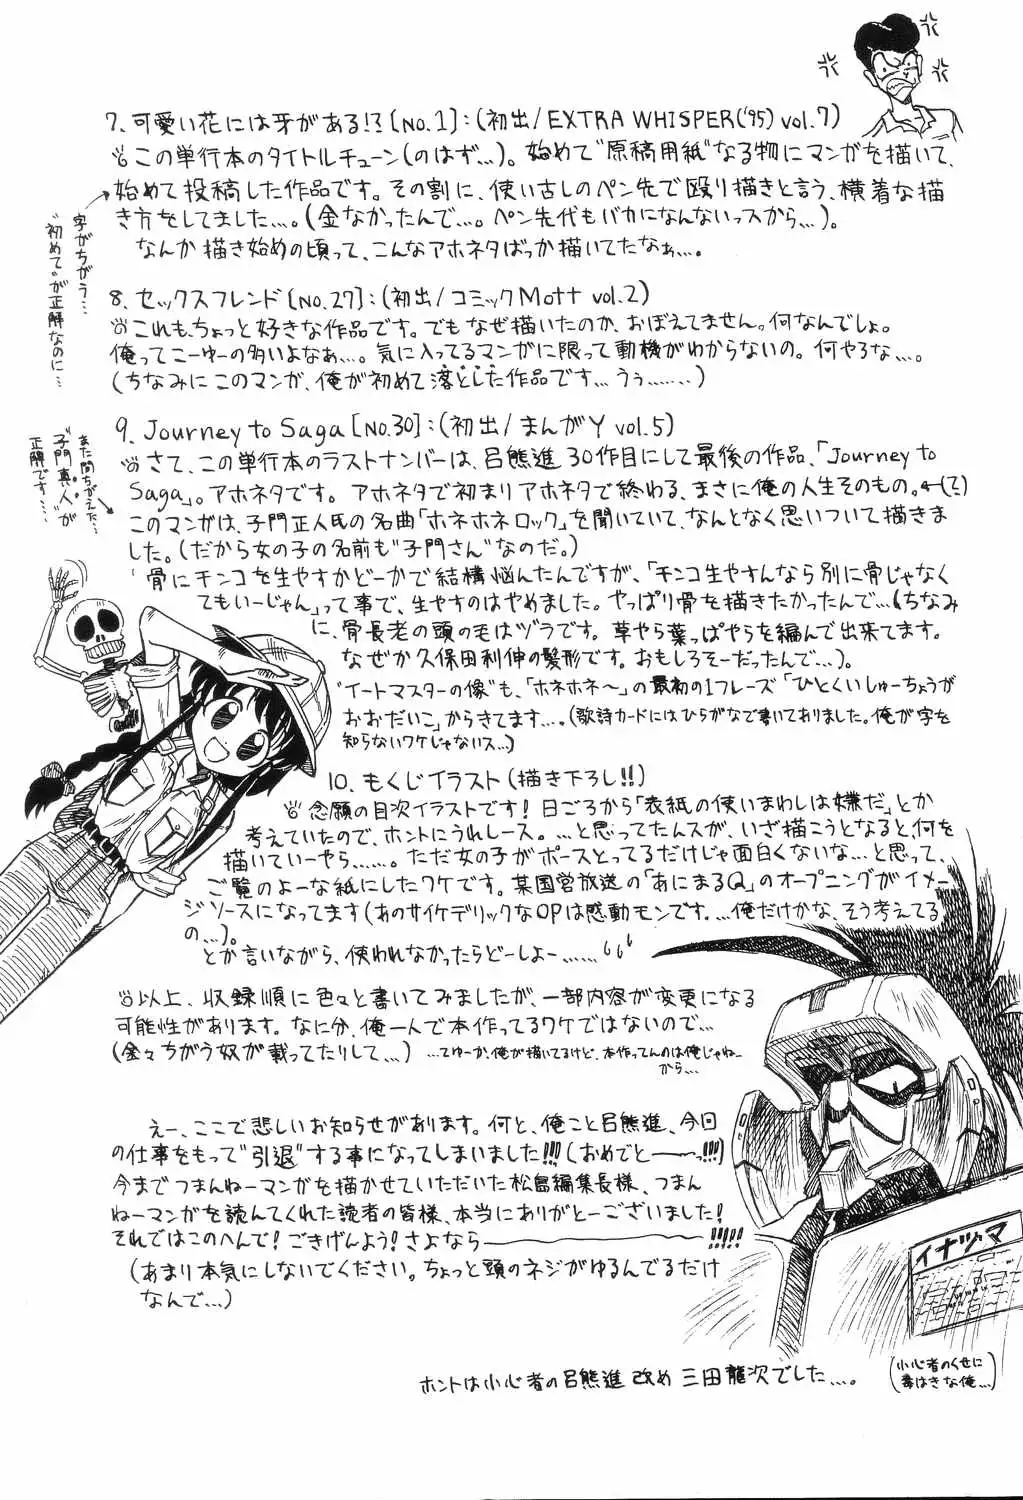 7、可愛い花には牙がある!?[NO.1]:(初出/EXTRA WHISPER('95) vol.7)
この単行本のタイトルチューン(のはず…)。始めて"原稿用紙"なる物にマンガを描いて、
始めて投稿した作品です。その割に、使い古しのペン先で殴り描きと言う、横着な描
き方をしてました…。(金なかったんで…。ペン先代もバカになんないっスから…)。
なんか描き始めの頃って、こんなアホネタばっか描いてたなぁ…。
字がちがう…
"初めて"が正解なのに…
8、セックスフレンド[NO.27]:(初出/コミックMott vol.2)
これも、ちょっと好きな作品です。でもなぜ描いたのか、おぼえてません。何なんでしょ。
俺ってこーゆーの多いよなぁ…。気に入ってるマンガに限って動機がわからないの。何やろな…。
(ちなみにこのマンガ、俺が初めて落とした作品です…うぅ……)
9、Journey to Saga[NO.30]:(初出/まんがY vol.5)
さて、この単行本のラストナンバーは、呂熊進30作目にして最後の作品、「Journey to
Saga」。アホネタです。アホネタで初まりアホネタで終わる、まさに俺の人生そのもの。←(で)
このマンガは、子門正人氏の名曲「ホネホネロック」を聞いていて、なんとなく思いついて描きま
した。(だから女の子の名前も"子門さん"なのだ。)
また間ちがえた…
"子門真人"が
正解です…
骨にチンコを生やすかどーかで結構悩んだんですが、「チンコ生やすんなら別に骨じゃなく
てもいーじゃん」って事で、生やすのはやめました。やっぱり骨を描きたかったんで…(ちなみ
に、骨長老の頭の毛はヅラです。草やら葉っぱやらを編んで出来てます。
なぜか久保田利伸の髪形です。おもしろそーだったんで…)。
"イートマスターの像"も、「ホネホネ〜」の最初の1フレーズ「ひとくいしゅーちょうが
おおだいこ」からきてます…。(歌詩カードにはひらがなで書いてありました。俺が字を
知らないワケじゃないス…)
10、もくじイラスト(描き下ろし!!)
念願の目次イラストです!日ごろから「表紙の使いまわしは嫌だ」とか
考えていたので、ホントにうれレース。…と思ってたんスが、いざ描こうとなると、何を
描いていーやら……。ただ女の子がポースとってるだけじゃ面白くないな…と思って、
ご覧のよーな紙にしたワケです。某国営放送の「あにまるQ」のオープニングがイメー
ジソースになってます(あのサイケデリックなOPは感動モンです。…俺だけかな、そう考えてる
の…)。
とか言いながら、使われなかったらどーしよー……
以上、収録順に色々と書いてみましたが、一部内容が変更になる
可能性があります。なに分、俺一人で本作ってるワケではないので…
(全々ちがう奴が載ってたりして…) …てゆーか、俺が描いてるけど、本作ってんのは俺じゃねー
から…
えー、ここで悲しいお知らせがあります。何と、俺こと呂熊進、今日
の仕事をもって"引退"する事になってしまいました!!!(おめでと――っ!!!)
今までつまんねーマンガを描かせていただいた松島編集長様、つまん
ねーマンガを読んでくれた読者の皆様、本当にありがとーございました!
それではこのへんで!ごきげんよう!さよなら――――!!!!!
(あまり本気にしないでください。ちょっと頭のネジがゆるんでるだけ
なんで…)
イナヅマ
ホントは小心者の呂熊進 改め 三田龍次でした…。
(小心者のくせに
毒はきな俺…)